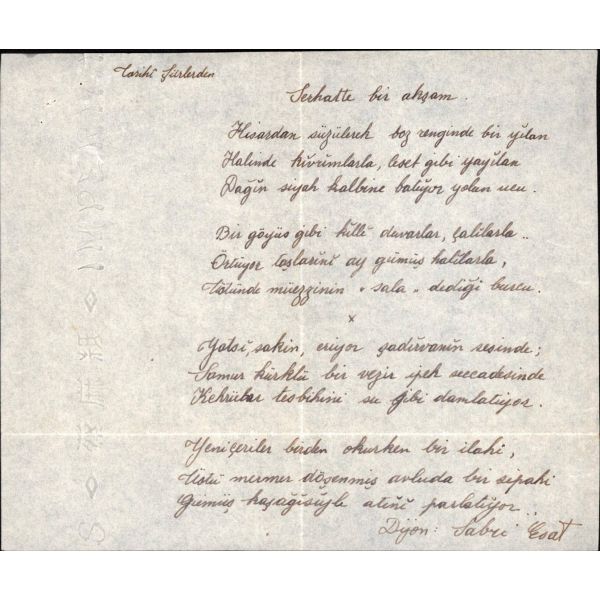 Tarihî Şiirlerden
Serhatte bir akşam.
Hisardan süzülerek boz renginde bir yılan
Halinde kıvrımlarla, leset gibi yayılan
Dağın siyah kalbine batıyor yolun ucu.
Bir göyüs gibi killi duvarlar, çalilarla..
Örtüyor taşlarini ay gümüş halılarla,
Üstünde müezzinin "sala" dediği burcu.
x
Yatsi, sakin, eriyor şadirvanin sesinde;
Samur kürklü bir vezir ipek seccadesinde
Kehrübar tesbihini su gibi damlatiyor.
Yeniçeriler birden okurken bir ilahi,
Üstü mermer döşenmiş avluda bir sipahi
Gümüş kaşağisiyle atini parlatiyor..
Dijon: Sabri Esat